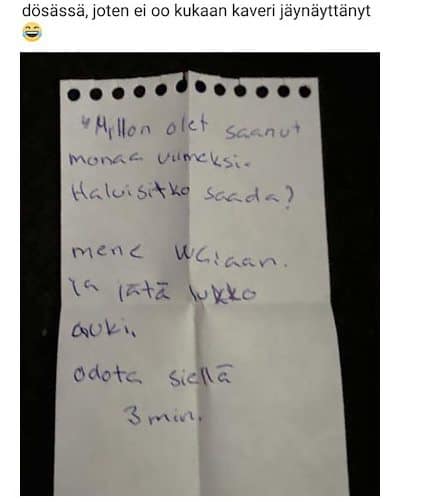 dösässä, joten ei oo kukaan kaveri jäynäyttänyt
😂
"Millon olet saanut
monaa viimeksi.
Haluisitko saada?
mene WCiaan.
ja jätä lukko
auki.
odota siellä
3 min.